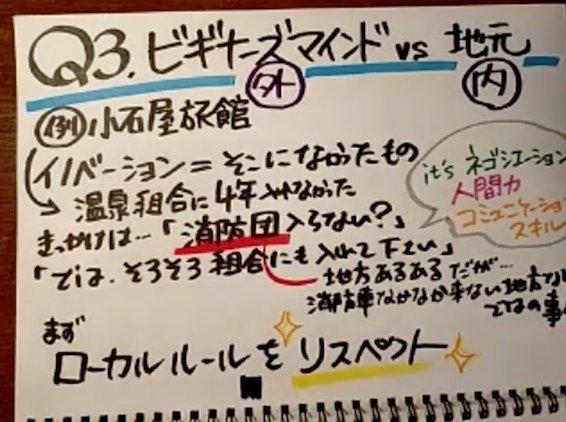 Q3.ビギナーズマインド vs 地元
外 内
例 小石屋旅館
イノベーション=そこになかったもの
→温泉組合に4年入れなかった
きっかけは…「消防団入らない?」
「では、そろそろ組合にも入れて下さい」
地方あるあるだが…
消防車なかなか来ない地方な
ではの事
it's ネゴシエーション
人間力
コミュニケーション
スキル
まず
ローカルルールをリスペクト